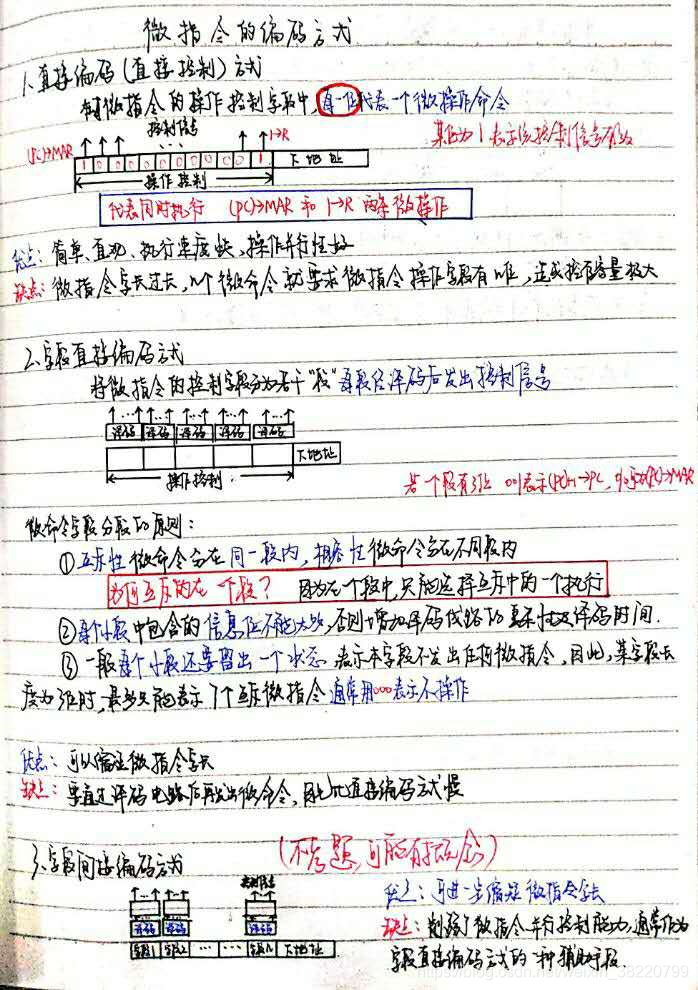 微指令的编码方式
1.直接编码(直接控制)方式
在微指令的操作控制字段中,每一位代表一个微操作命令
某位为1表示该控制信号有效
控制信号
(PC)→MAR
1→R
1 0 0 0 0 0 0 0 0 0 1 下地址
操作控制
代表同时执行 (PC)→MAR 和 1→R 两条微操作
优点:简单、直观、执行速度快,操作并行性好
缺点:微指令字长过长,n个微命令就要求微指令操作字段有n位,造成控存容量极大
2.字段直接编码方式
将微指令的控制字段分为若干"段"每段经译码后发出控制信号
译码 译码 译码 译码 译码
下地址
操作控制
若一个段有3位 001表示(PC)+1→PC, (PC)→MAR
微命令字段分段的原则:
①互斥性微命令分在同一段内,相容性微命令分在不同段内
为何互斥的在一个段? 因为在一个段中,只能选择互斥中的一个执行
②每个小段中包含的信息位不能太多,否则增加译码线路的复杂性及译码时间.
③一般每个小段还要留出一个状态 表示本字段不发出任何微指令,因此,某字段长
度为3位时,最多只能表示7个互斥微指令 通常用000表示不操作
优点:可以缩短微指令字长
缺点:要通过译码电路后再发出微命令,因此比直接编码方式慢
3.字段间接编码方式
(不考题,可能有概念)
控制信号
译码 译码 译码
字段1 字段2 … … 字段n 下地址
优点:可进一步缩短微指令字长
缺点:削弱了微指令并行控制能力,通常作为
字段直接编码方式的一种辅助手段
https://blog.csdn.net/weixin_38220799